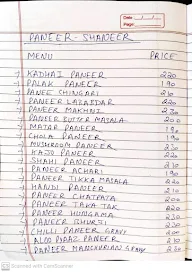 Date / /
Page
PANEER - SHANEER
MENU PRICE
→ KADHAI PANEER 220
→ PALAK PANEER 190
→ PANEER CHINGARI
→ PANEER LABABDAR 220
→ PANEER MAKHNI 230
→ PANEER BUTTER MASALA 200
→ MATAR PANEER 190
→ CHOLA PANEER 190
→ MUSHROOM PANEER 230
→ KAJU PANEER 220
→ SHAHI PANEER 210
→ PANEER ACHARI 190
→ PANEER TIKKA MASALA 220
→ HANDI PANEER 210
→ PANEER CHATPATA 200
→ PANEER TAKA TAK 220
→ PANEER HUNGAMA 230
→ PANEER BHURJI 230
→ CHILLI PANEER GRAVY 200
→ ALOO PYAAZ PANEER 210
→ PANEER MANCHURIAN GRAVY 230
Scanned with CamScanner